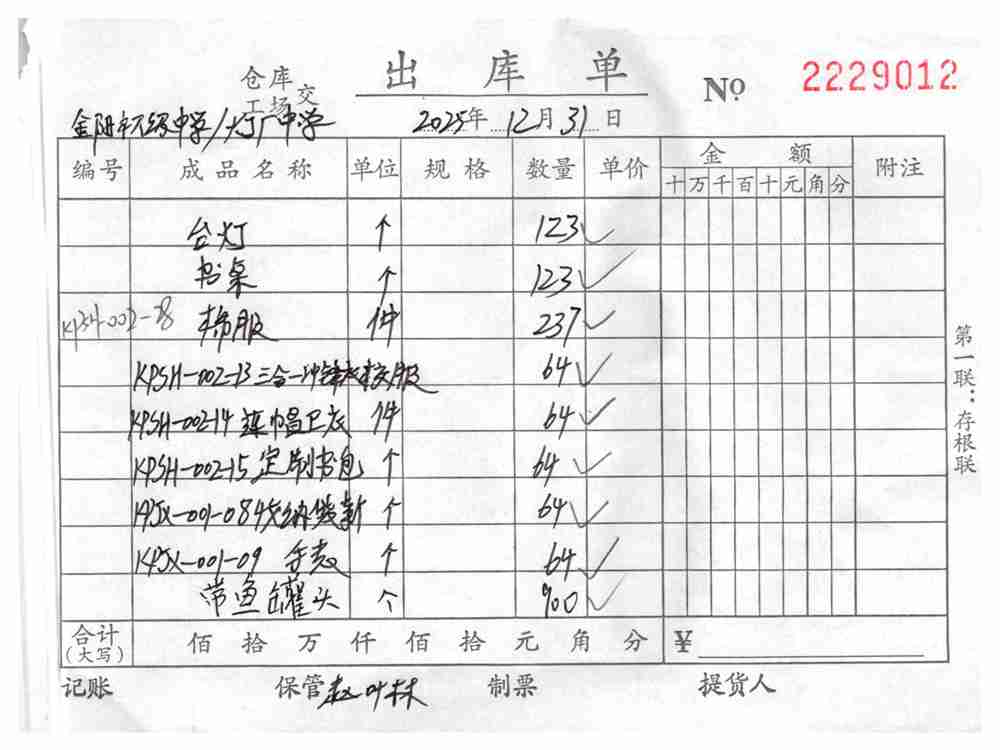 仓库 出库单 No 2229012
工场交
中学/大厂中学 2025年12月31日
编号 成品名称 单位 规格 数量 单价 金额 附注
十万千百十元角分
台灯 个 123
书桌 个 123
002-28 棉服 件 237
KPSH-002-13三合一冲锋衣校服 64
KPSH-002-14 连帽卫衣 件 64
KPSH-002-15 定制书包 个 64
KPJX-001-08收纳袋新 个 64
KPJX-001-09 手表 个 64
带鱼罐头 个 900
合计(大写) 佰拾万仟佰拾元角分 ¥
记账 保管 赵叶林 制票 提货人
第一联:存根联